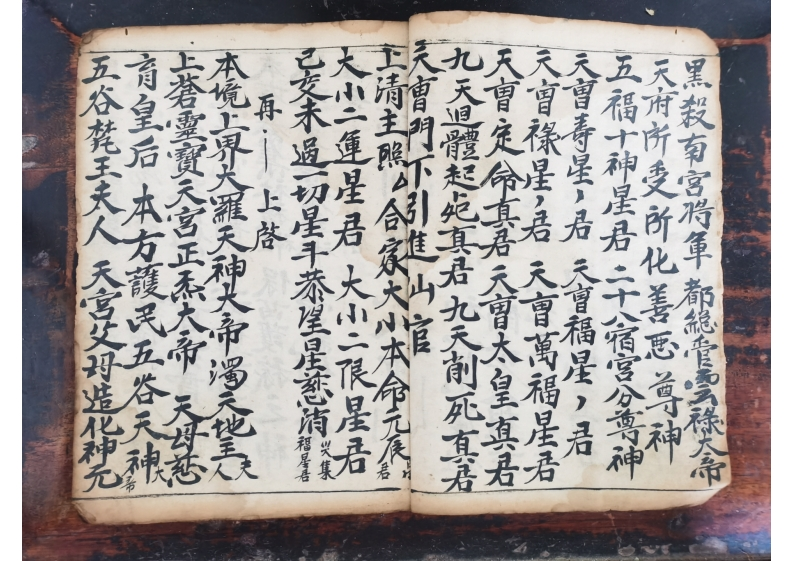 黑殺南宮將軍 都總管雲祿大帝
天府所委所化善惡尊神
五福十神星君 二十八宿宮分尊神
天曹壽星〻君 天曹福星〻君
天曹祿星〻君 天曹萬福星君
天曹定命真君 天曹太皇真君
九天迴體起死真君 九天削死真君
天曹門下引進山官
上清主照厶合家大小本命元辰星君
大小二運星君 大小二限星君
已交未過一切星斗恭望星慈消災集福星君
再〻上啓
本境上界大羅天神大帝 濁天地主夫人
上蒼靈寶天宮正炁大帝 天母慈
育皇后 本方護民五谷天神大帝
五谷 王夫人 天宮父母造化神元